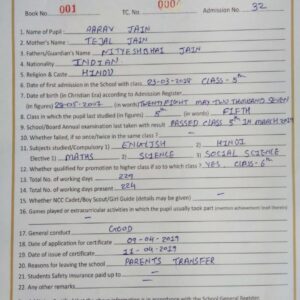 Book No. 001 TC. No. 000 Admission No. 32
1. Name of Pupil : AARAV JAIN
2. Mother's Name : TEJAL JAIN
3. Fathers/Guardian's Name : NITYESHBHAI JAIN
4. Nationality INDIAN
5. Religion & Caste : HINDU
6. Date of first admission in the School with class : 23-03-2018 CLASS - 5th
7. Date of birth (in Christian Era) according to Admission Register
(in figures) 28-05-2007 (in words) TWENTY EIGHT MAY TWO THOUSAND SEVEN
8. Class in which the pupil last studied (in figures) 5th (in words) FIFTH
9. School/Board Annual examination last taken with result PASSED CLASS 5th IN MARCH 2019
10. Whether failed, if so once/twice in the same class : -
11. Subjects studied/Compulsory 1) ENGLISH 2) HINDI
Elective 1) MATHS 2) SCIENCE 3) SOCIAL SCIENCE
12. Whether qualified for promotion to higher class if so to which class : YES, CLASS - 6th
13. Total No. of working days 229
14. Total No. of working days present 224
15. Whether NCC Cadet/Boy Scout/Girl Guide (details may be given) -
16. Games played or extracurricular activities in which the pupil usually took part (mention achievement level therein)
-
17. General conduct GOOD
18. Date of application for certificate 09-04-2019
19. Date of issue of certificate 11-04-2019
20. Reasons for leaving the school PARENTS TRANSFER
21. Students Safety Insurance paid up to -
22. Any other remarks -